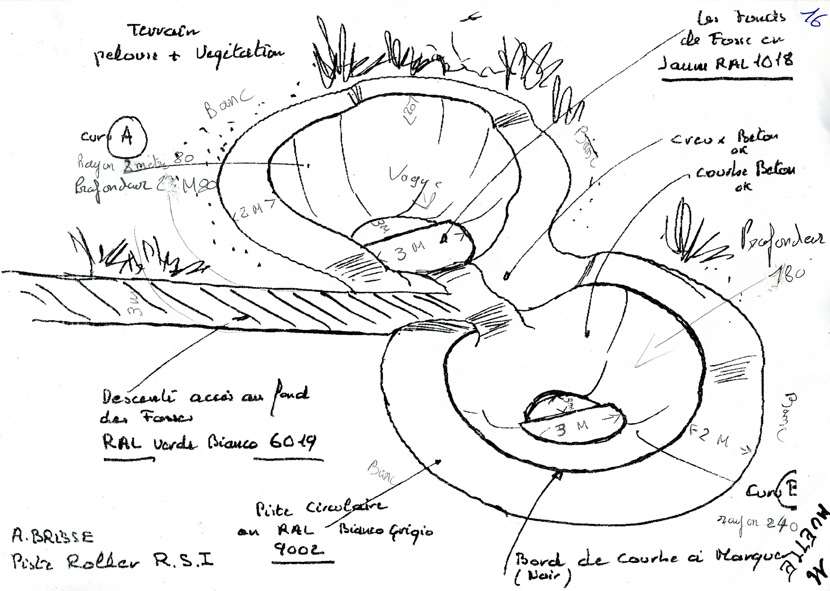 16
Terrain
pelouse + Vegetation
Les Fonds
de Fosse en
Jaune RAL 1018
Banc
curv A
Rayon 2 mètr 80
Profondeur 2 M20
180
Banc
creux Beton
ok
courbe Beton
ok
Vague
3M
3 M
<2 M>
Profondeur
180
3m
Descente accès au fond
des Fosses
RAL Verde Bianco 6019
3 M
F 2 M
Banc
Banc
curv B
rayon 240
Piste Circulaire
en RAL Bianco Grigio
9002
Bord de Courbe à Marquer
(Noir)
A. BRISSE
Piste Roller R.S.I
MUETTE
M